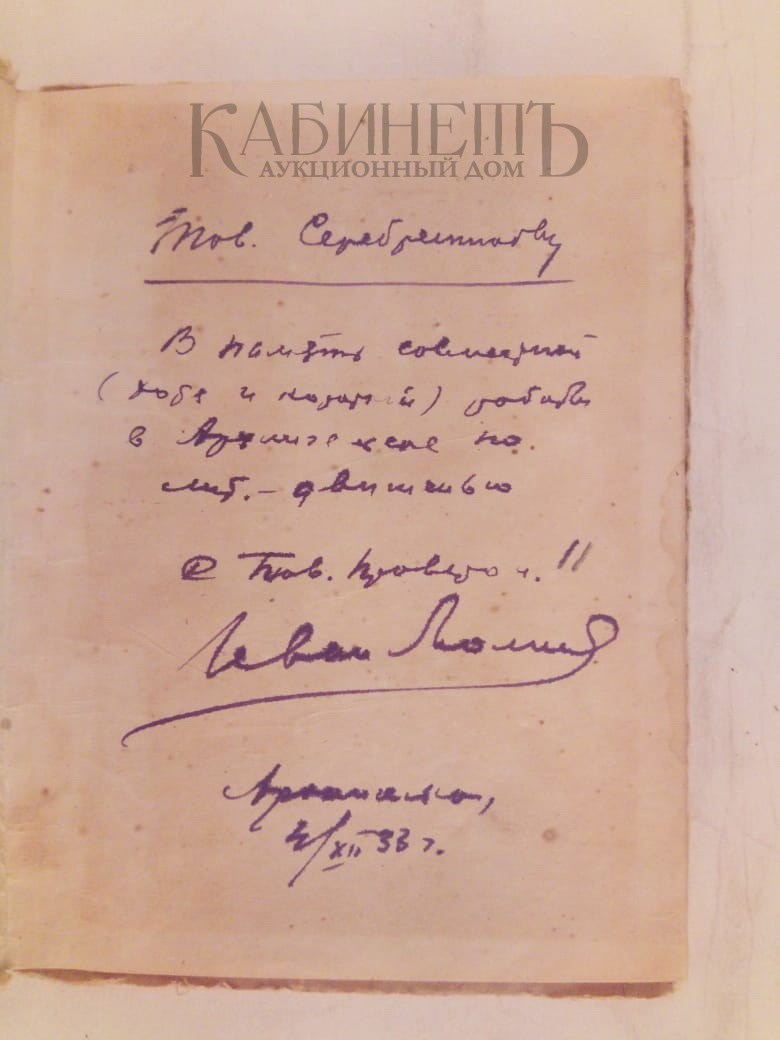 КАБИНЕТЪ
АУКЦИОННЫЙ ДОМ
Тов. Серебренникову
В память совместной
(хотя и короткой) работы
в Архангельске по
лит. - движению
С Тов. приветом.
Иван Молчанов
Архангельск,
4/XII 33 г.